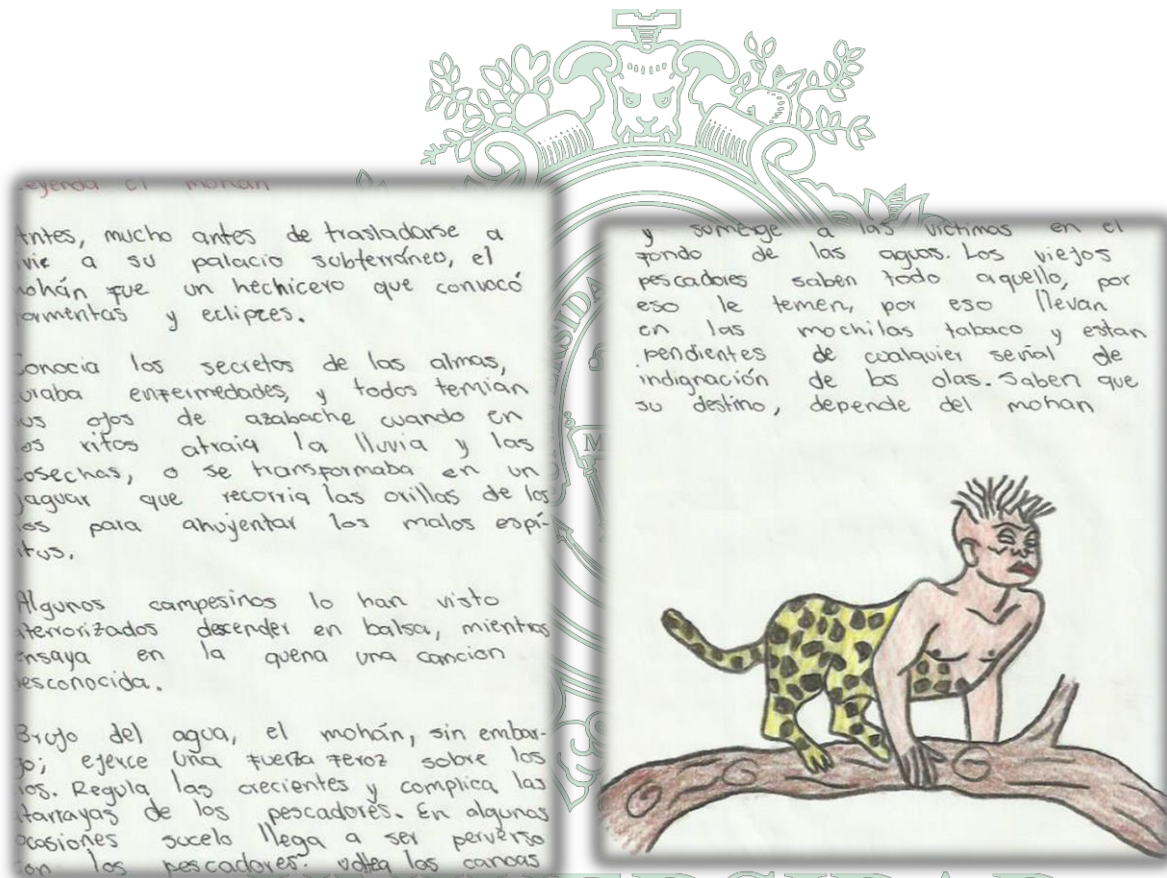 eyenda el mohan
ntes, mucho antes de trasladarse a
vir a su palacio subterráneo, el
ohán fue un hechicero que convocó
ormentas y eclipces.
Conocia los secretos de las almas,
uraba enfermedades, y todos temian
us ojos de azabache cuando en
os ritos atraia la lluvia y las
cosechas, o se transformaba en un
jaguar que recorria las orillas de los
os para ahuyentar los malos espí-
itus.
Algunos campesinos lo han visto
terrorizados descender en balsa, mientras
ensaya en la quena una cancion
desconocida.
Brujo del agua, el mohán, sin embar-
go; ejerce una fuerza feroz sobre los
ios. Regula las crecientes y complica las
atarrayas de los pescadores. En algunas
ocasiones sucelo llega a ser perverso
con los pescadores: voltea las canoas
y sumerge a las victimas en el
fondo de las aguas. Los viejos
pescadores saben todo aquello, por
eso le temen, por eso llevan
en las mochilas tabaco y estan
pendientes de cualquier señal de
indignación de las olas. Saben que
su destino, depende del mohan